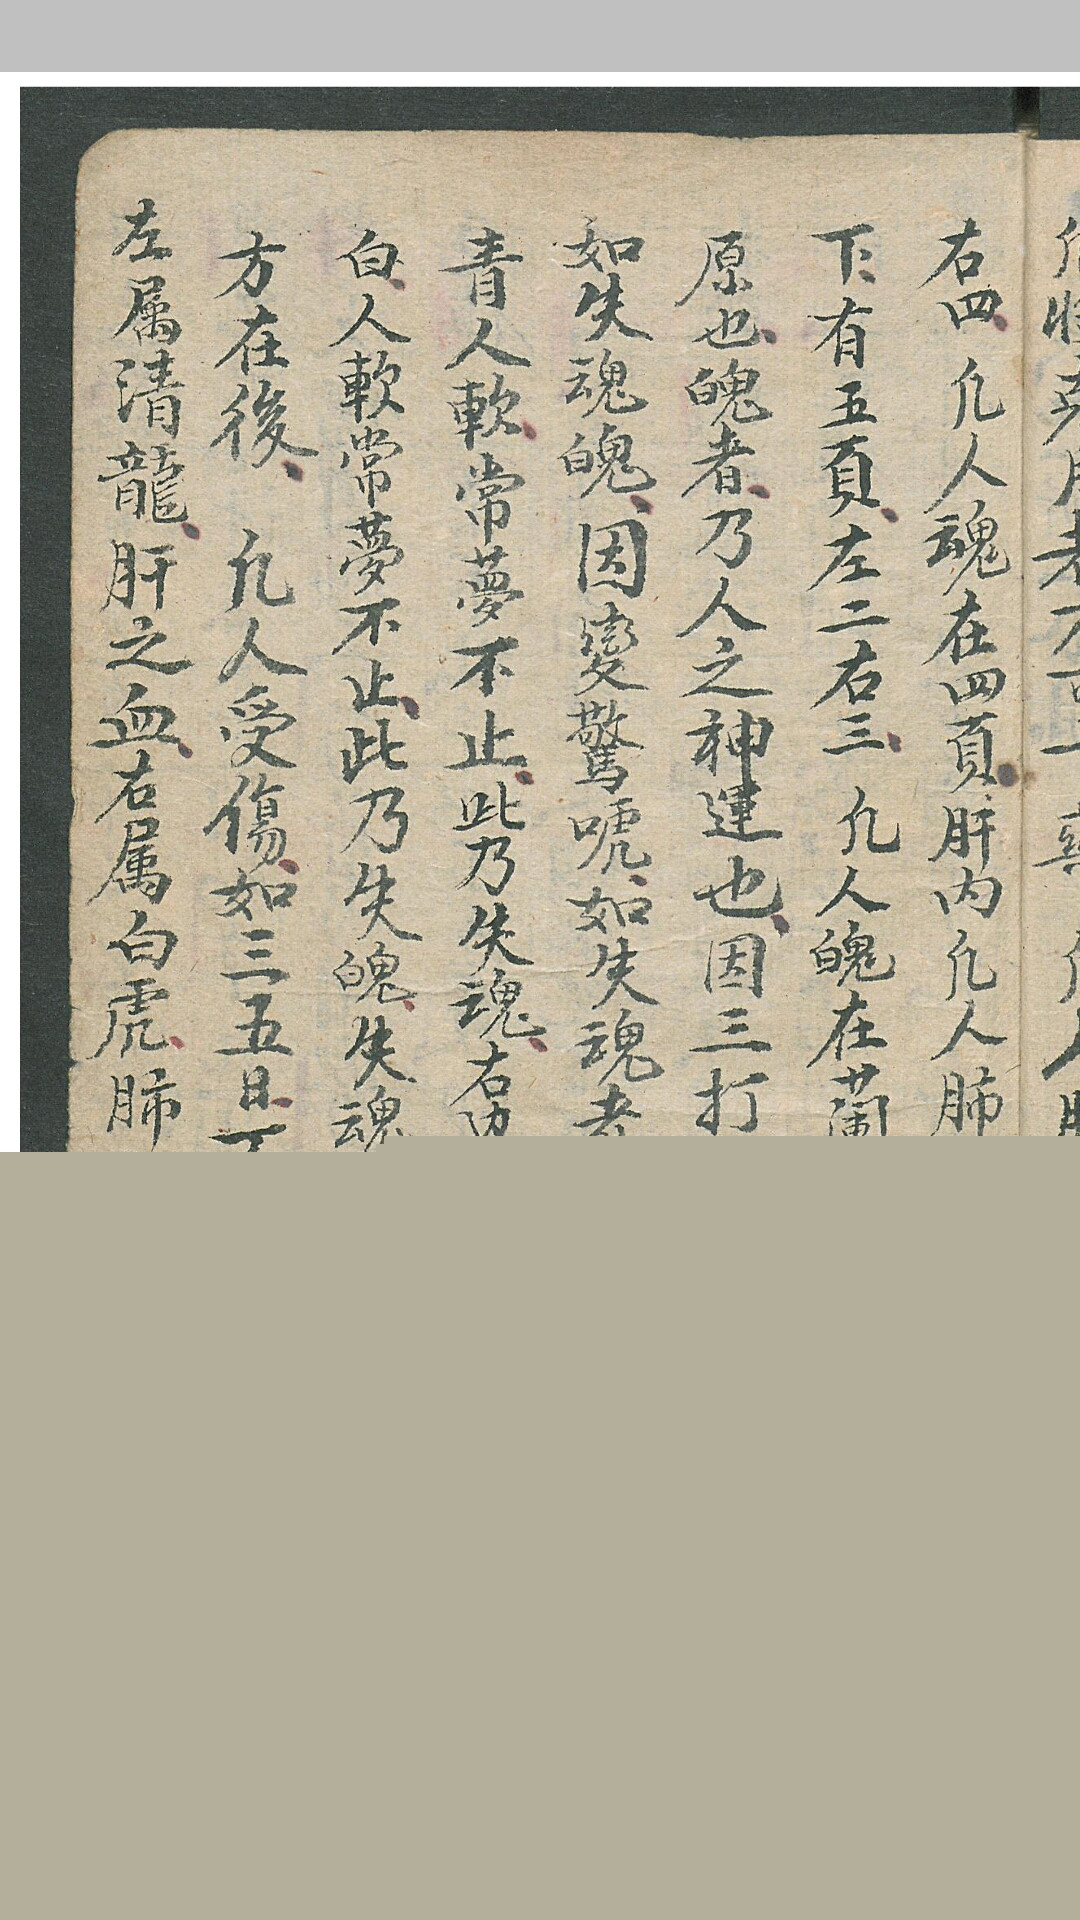 右四、凢人魂在四頁、肝内凢人肺
下、有五頁、左二右三、凢人魄在蘭
原也、魄者、乃人之神運也、因三打
如失魂魄、因變驚唬、如失魂者
青人軟、常夢不止、此乃失魂、右
白、人軟常夢不止、此乃失魄、失魂
方在後、凢人受傷、如三五日、
左属清龍、肝之血、右属白虎、肺